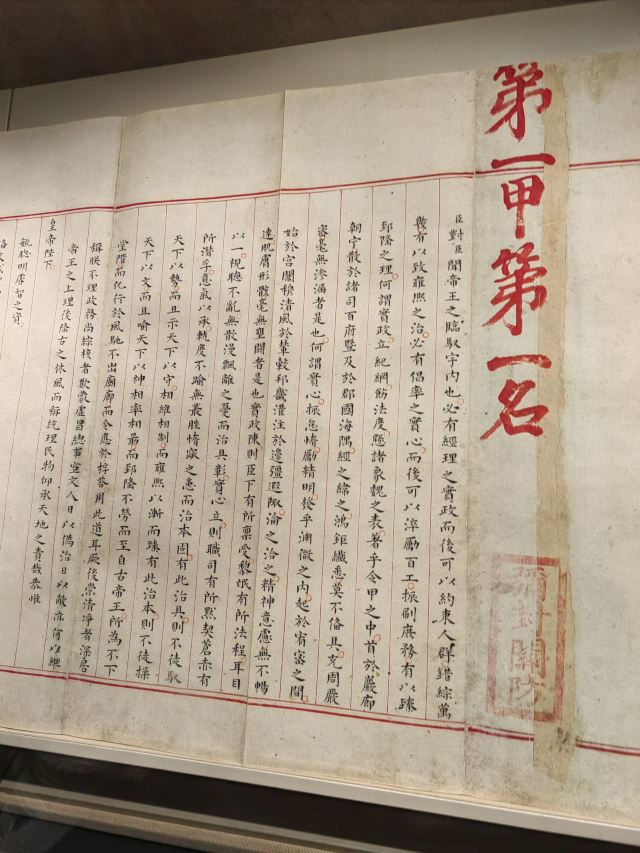 第一甲第一名
彌封關防
臣對臣聞帝王之臨馭宇內也必有經理之實政而後可以約束人群錯綜萬
幾有以致雍熙之治必有倡率之實心而後可以淬勵百工振刷庶務有以臻
郅隆之理何謂實政立紀綱飭法度懸諸象魏之表著乎令甲之中首於巖廊
朝宁散於諸司百府暨及於郡國海隅經之緯之鴻鉅纖悉莫不備具充周嚴
密毫無滲漏者是也何謂實心振怠惰勵精明發乎淵微之內起於宥密之間
始於宮闈穆清風於輦轂邦畿灌注於邊疆遐陬淪之洽之精神意慮無不暢
達肌膚形髓毫無壅閼者是也實政陳則臣下有所稟受黎氓有所法程耳目
以一視聽不亂無散漫飄離之憂而治具彰實心立則職司有所默契蒼赤有
所潛孚意氣以承軌度不踰無叢脞惰窳之患而治本固有此治具則不徒馭
天下以勢而且示天下以守相維相制而雍熙以漸而臻有此治本則不徒操
天下以文而且喻天下以神相率相勗而郅隆不勞而至自古帝王所為不下
堂階而化行於風馳不出廟廊而令應於桴答用此道耳厥後崇清凈者深居
稱朕不理政務尚綜核者欺蒙虛冒總事空文人日以偽治日以敝亦何以繼
帝王之上理後隆古之休風而稱統理民物仰承天地之責哉恭惟
皇帝陛下
毓聰明睿智之資